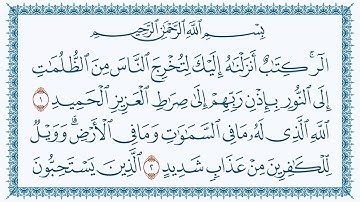 بِسْمِ ٱللَّهِ ٱلرَّحْمَٰنِ ٱلرَّحِيمِ
الٓر ۚ كِتَٰبٌ أَنزَلْنَٰهُ إِلَيْكَ لِتُخْرِجَ ٱلنَّاسَ مِنَ ٱلظُّلُمَٰتِ
إِلَى ٱلنُّورِ بِإِذْنِ رَبِّهِمْ إِلَىٰ صِرَٰطِ ٱلْعَزِيزِ ٱلْحَمِيدِ ١
ٱللَّهِ ٱلَّذِى لَهُۥ مَا فِى ٱلسَّمَٰوَٰتِ وَمَا فِى ٱلْأَرْضِ ۗ وَوَيْلٌ
لِّلْكَٰفِرِينَ مِنْ عَذَابٍ شَدِيدٍ ٢ ٱلَّذِينَ يَسْتَحِبُّونَ